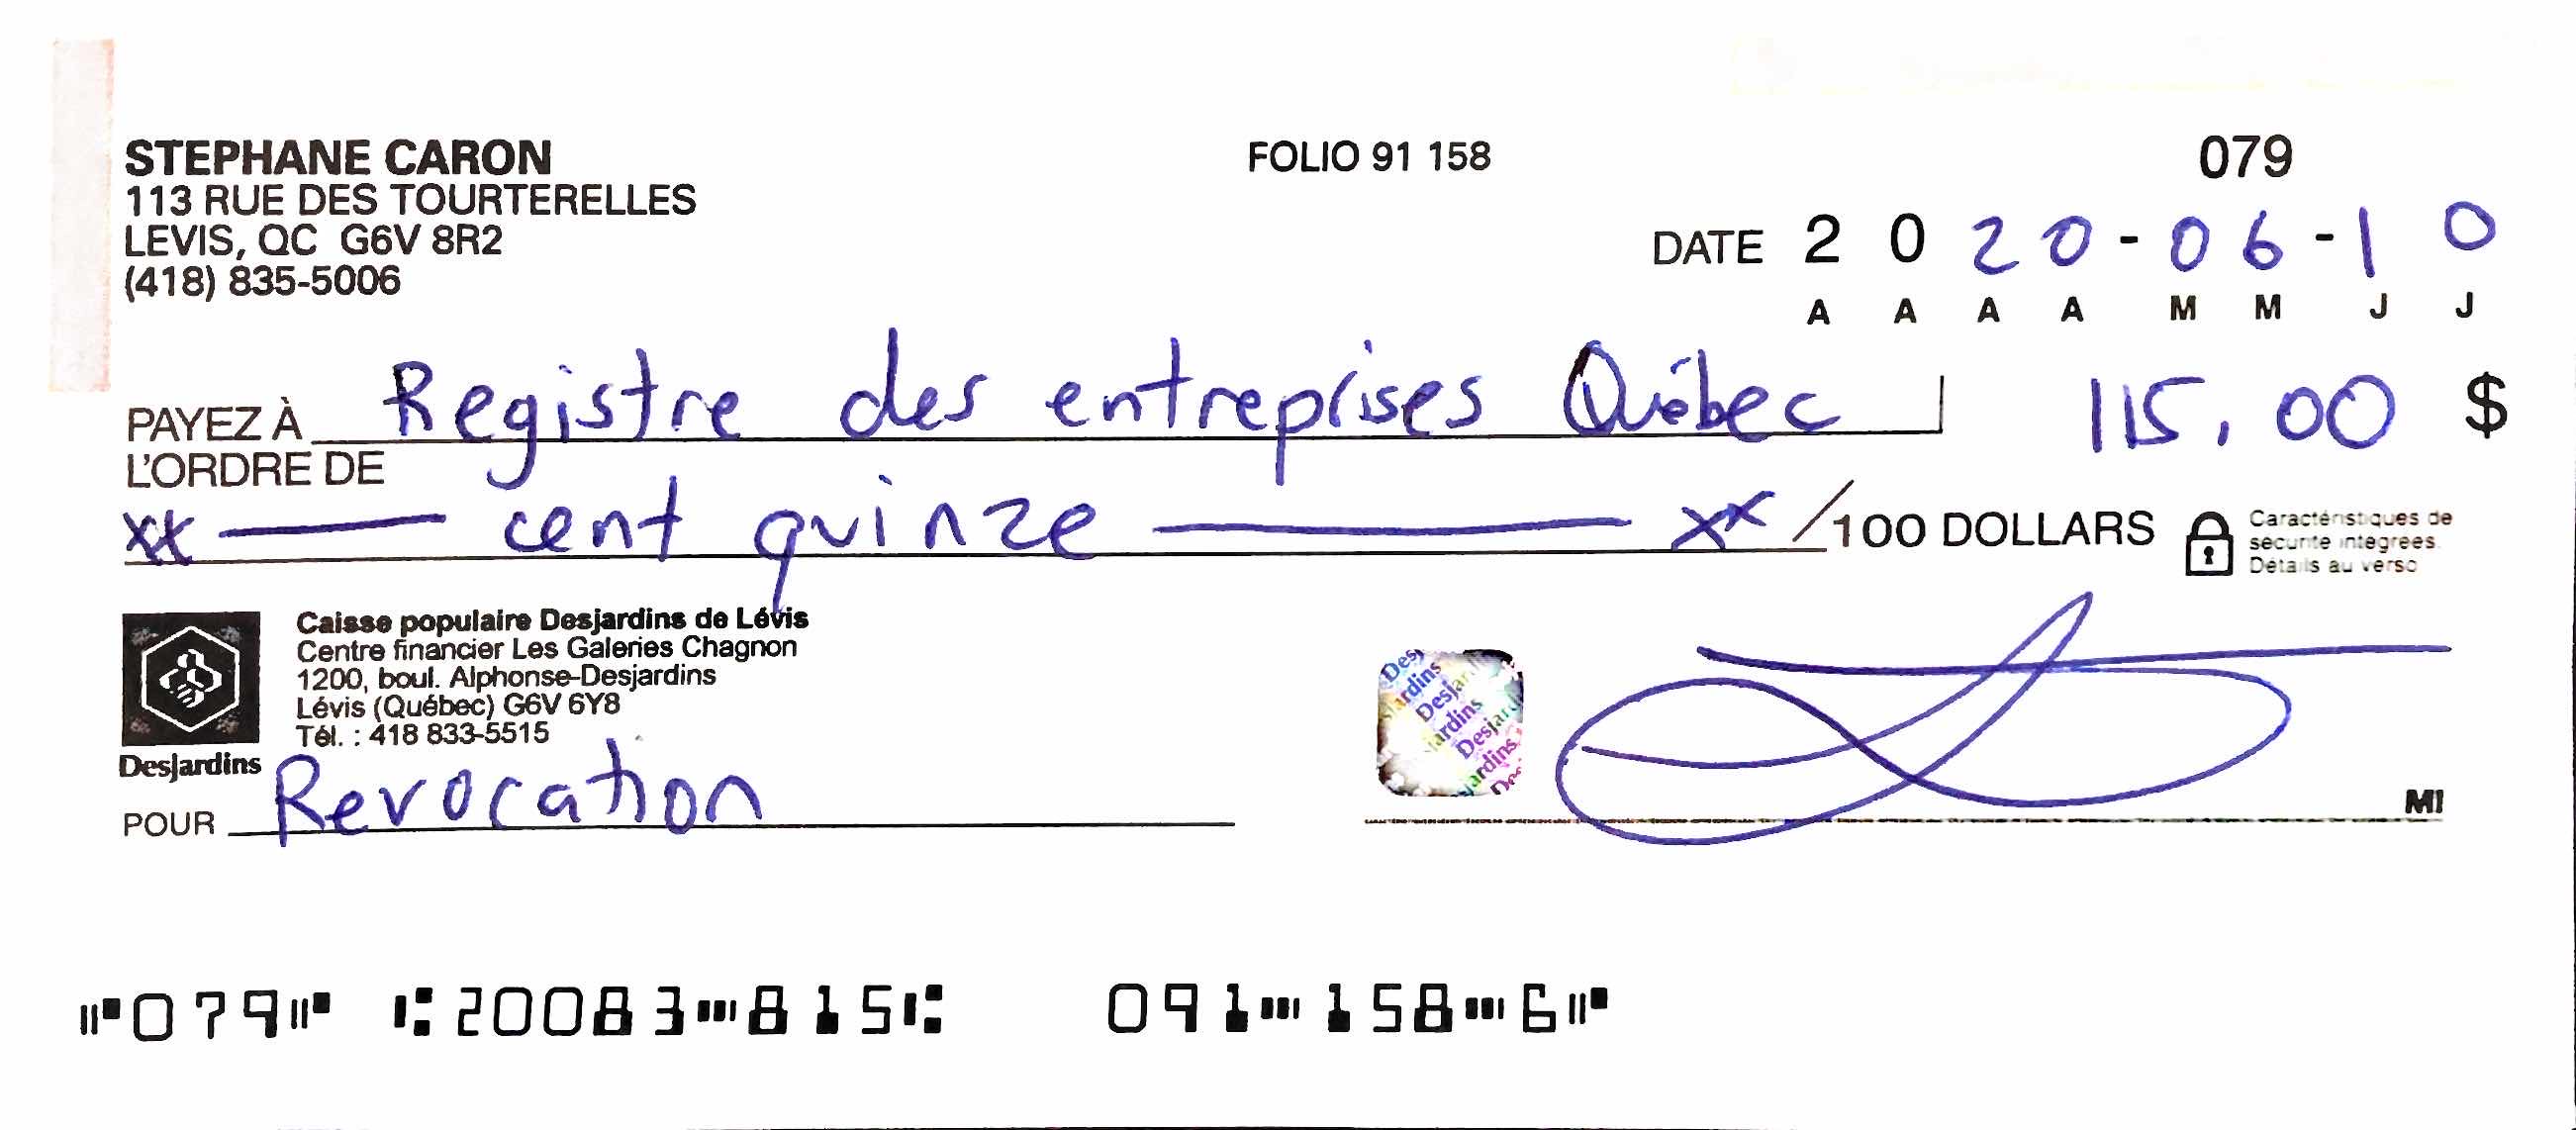 STEPHANE CARON
113 RUE DES TOURTERELLES
LEVIS, QC G6V 8R2
(418) 835-5006
FOLIO 91 158
079
DATE 2020-06-10
A A A A M M J J
PAYEZ À L'ORDRE DE Registre des entreprises Québec 115,00 $
xx cent quinze xx /100 DOLLARS
Caractéristiques de
sécurité intégrées.
Détails au verso
Caisse populaire Desjardins de Lévis
Centre financier Les Galeries Chagnon
1200, boul. Alphonse-Desjardins
Lévis (Québec) G6V 6Y8
Tél. : 418 833-5515
Desjardins
POUR Revocation
Desjardins
MI
⑈079⑈ ⑆20083⑉815⑆ 091⑉158⑉6⑈